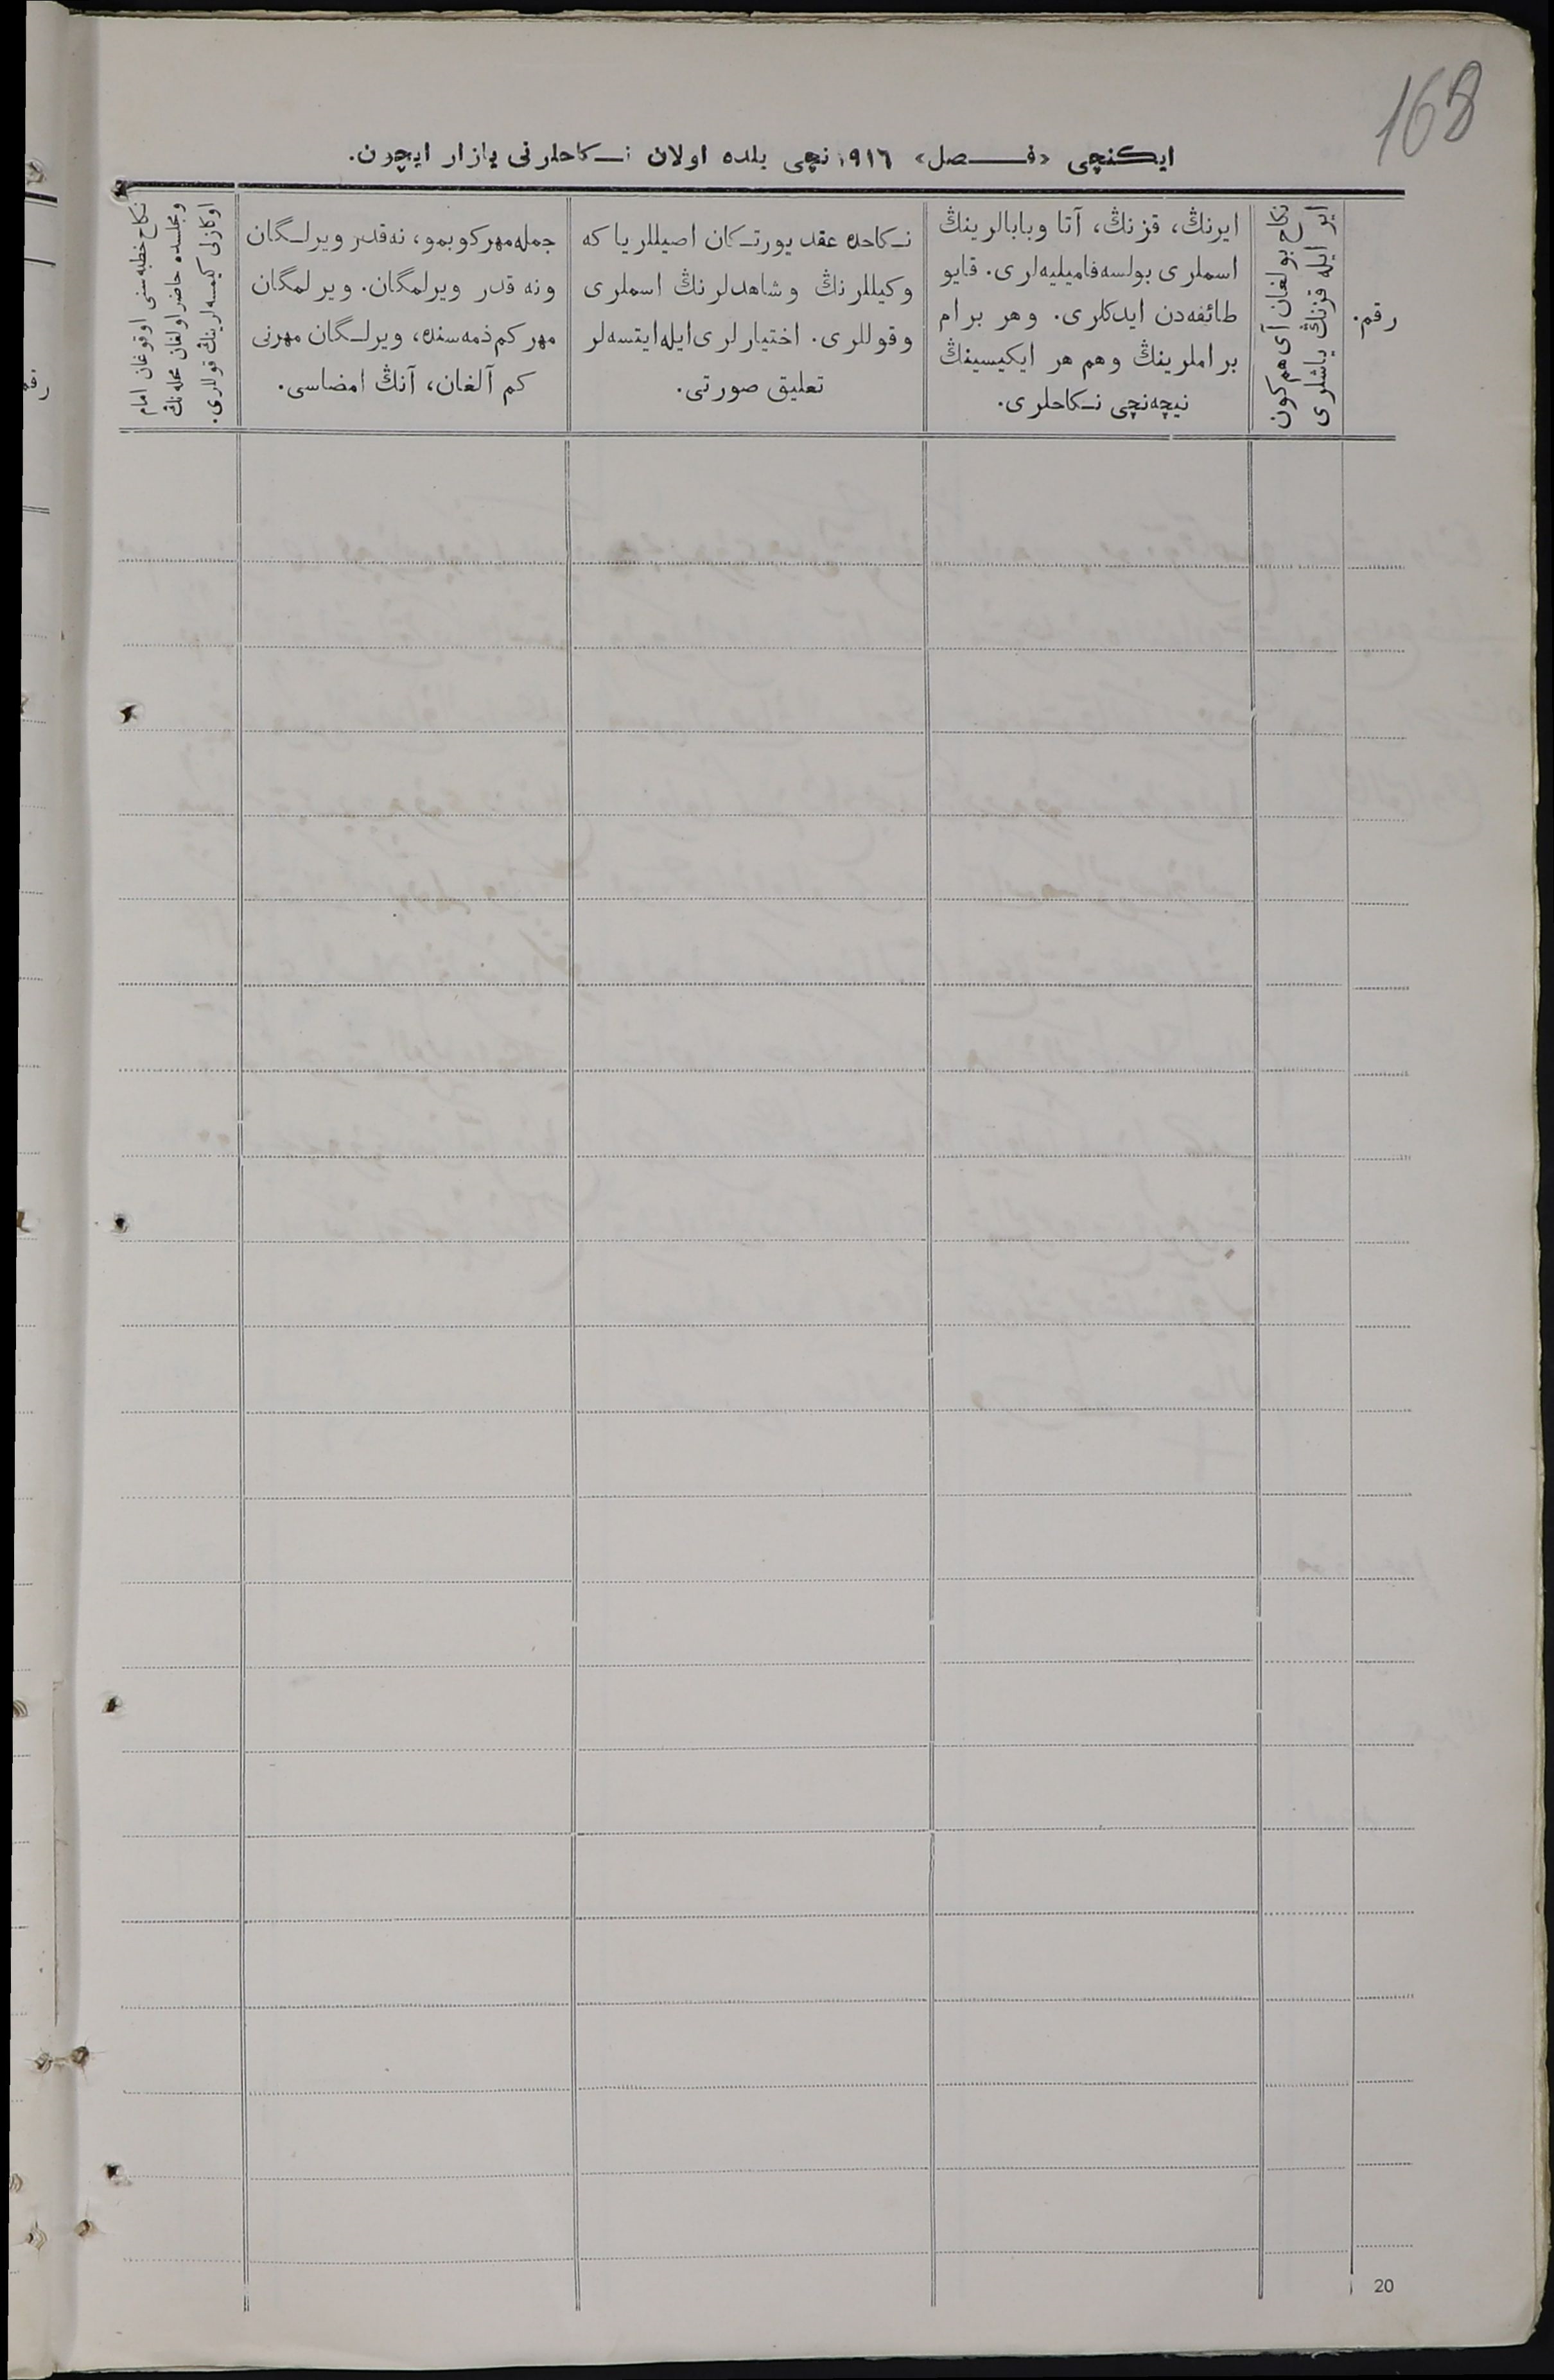 168
ایكنچی «فصل» ١٩١٦ نچی یلده اولان نكاحلرنی یازار ایچون.
رقم.
نكاح بولغان آی هم كون
ایر ایله قزنڭ یاشلری
ایرنڭ، قزنڭ، آتا وبابالرینڭ
اسملری بولسه فامیلیه‌لری. قایو
طائفه‌دن ایدكلری. وهر برام
براملرینڭ وهم هر ایكیسینڭ
نیچه‌نچی نكاحلری.
نكاحده عقد یورتكان اصیللر یا كه
وكیللرنڭ وشاهدلرنڭ اسملری
وقوللری. اختیارلری ایله ایتسه‌لر
تعلیق صورتی.
جمله مهر كوبمو، نه‌قدر ویرلگان
ونه قدر ویرلمگان. ویرلمگان
مهر كم ذمه‌سنده، ویرلگان مهرنی
كم آلغان، آنڭ امضاسی.
نكاح خطبه‌سنی اوقوغان امام
ومجلسده حاضر اولغان محله‌نڭ
اوكازلی كیمسه‌لرینڭ قوللری.
20